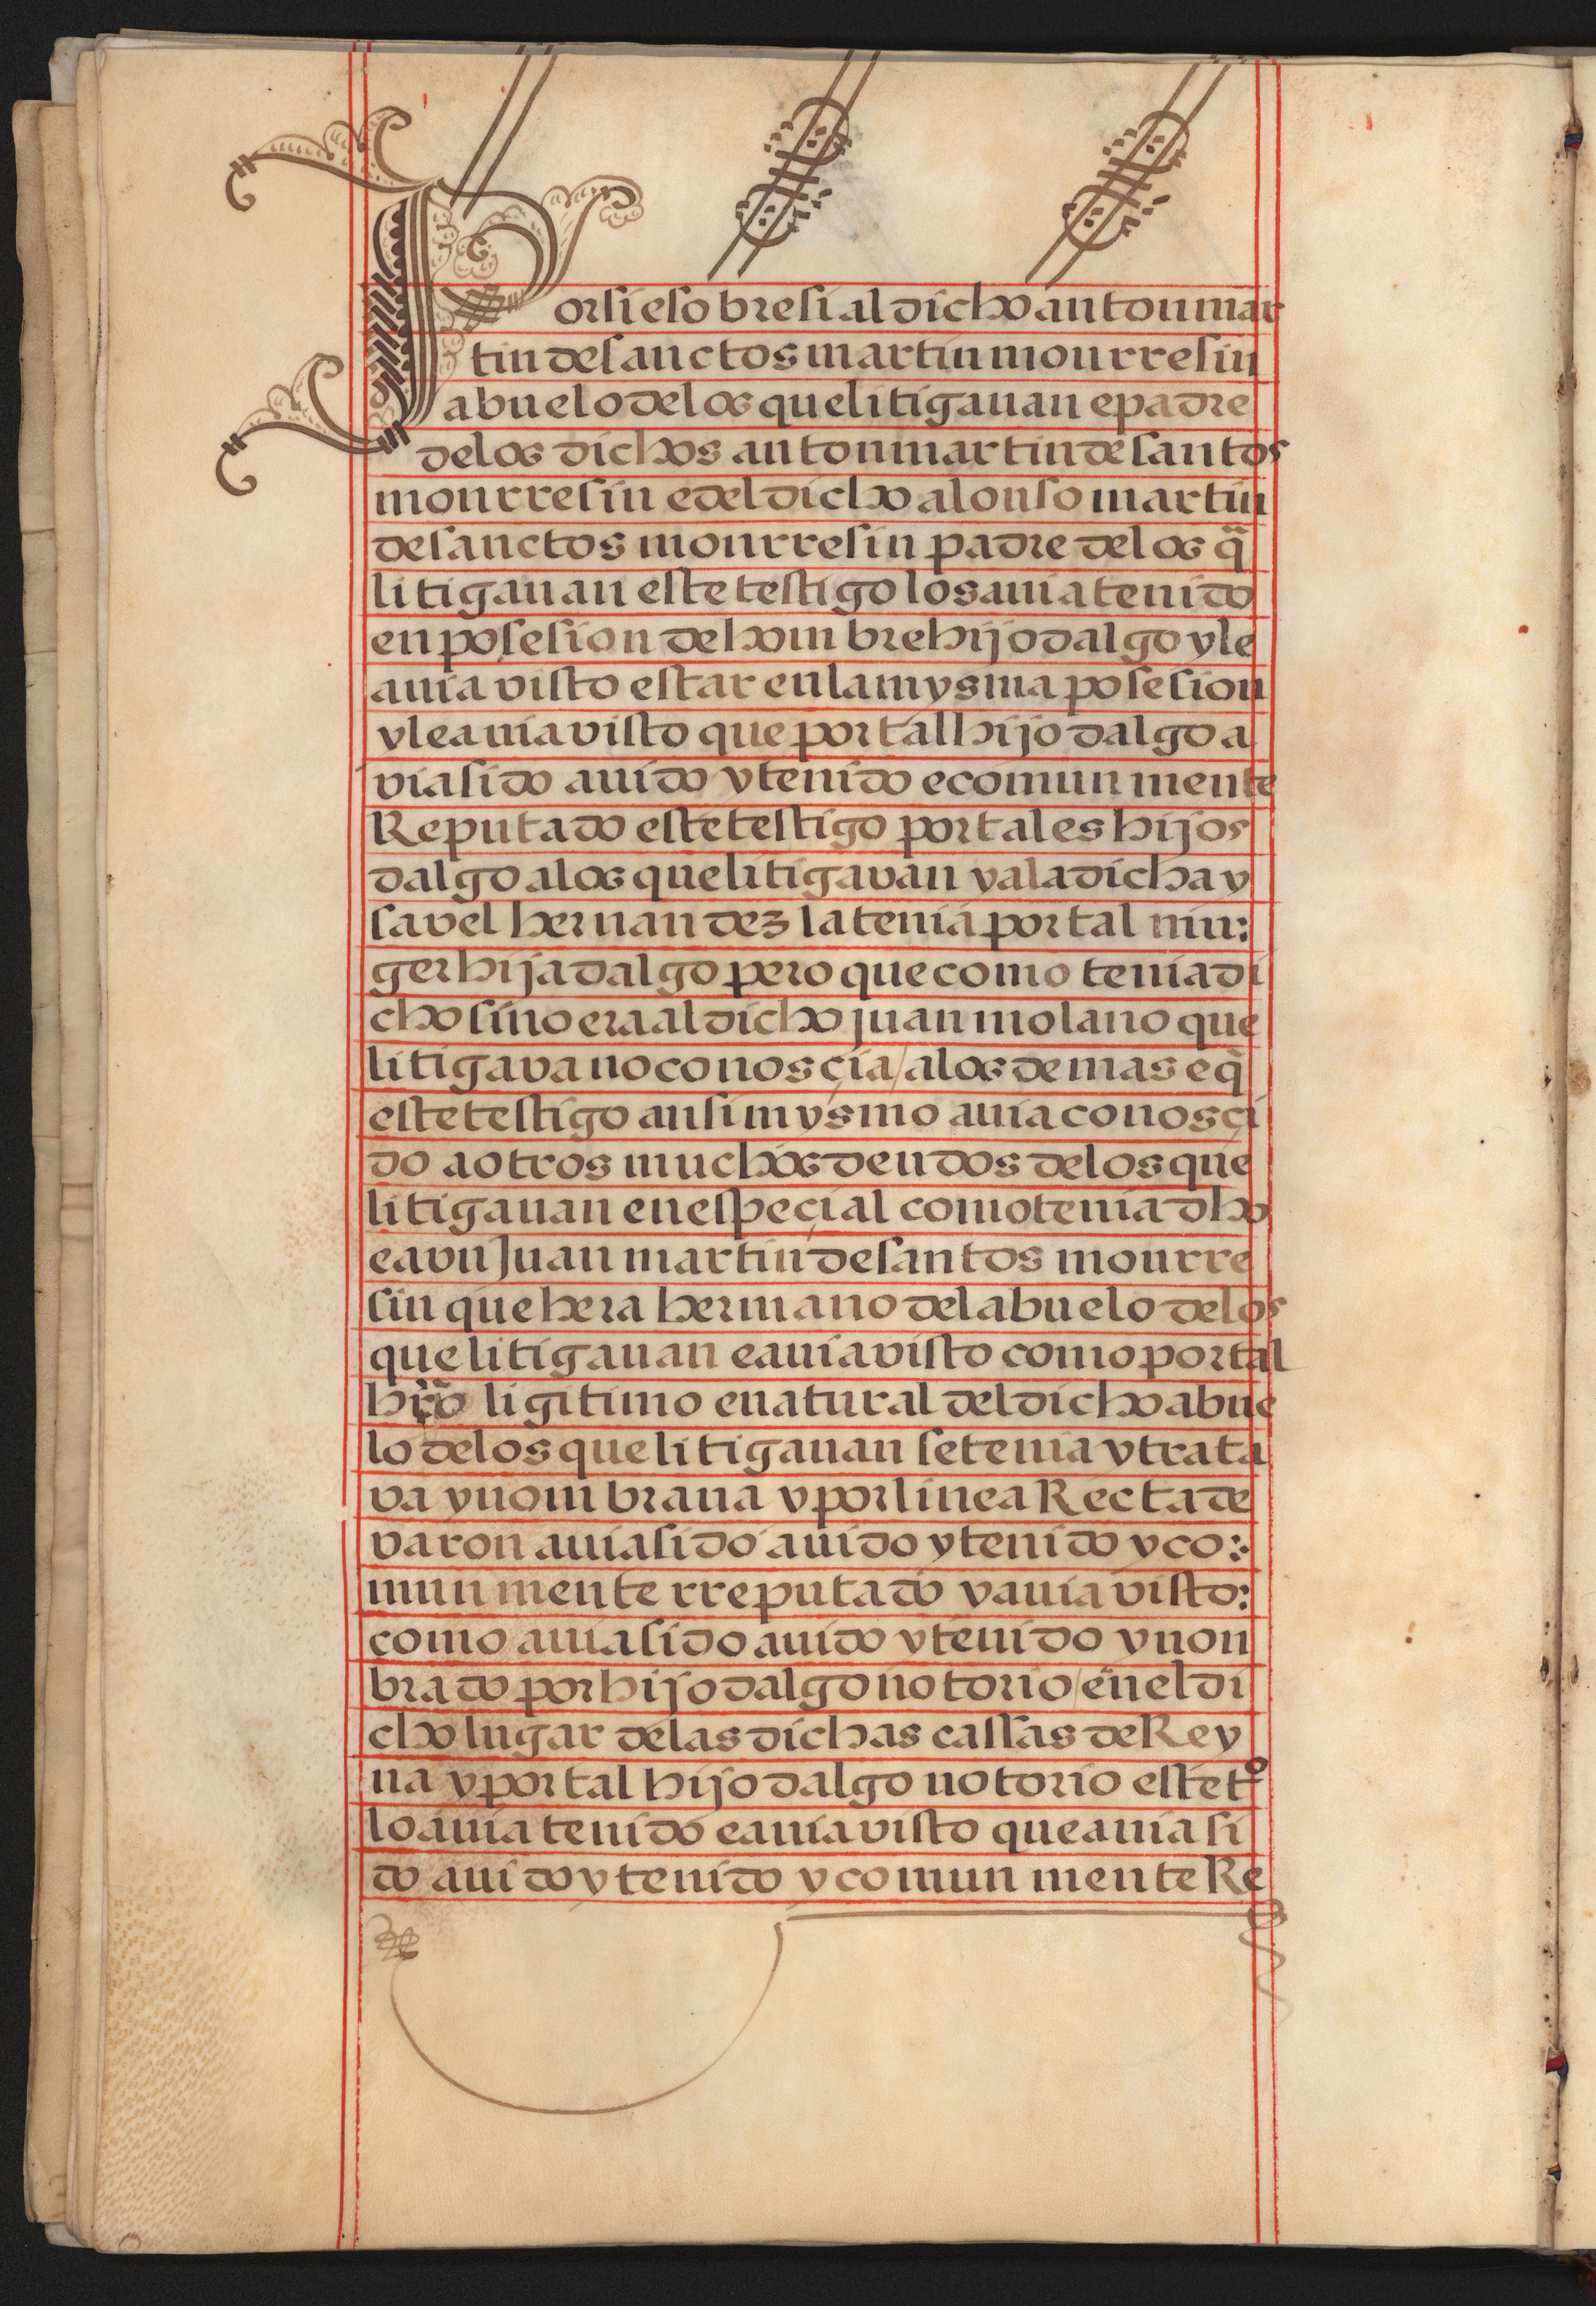 Por si e sobre si al dicho anton mar
tin de sanctos martin mourresin
abuelo de los que litigauan e padre
de los dichos anton martin de santos
mourresin e del dicho alonso martin
de sanctos mourresin padre de los q̃
litigauan este testigo los auia tenido
en posesion de hombre hijo dalgo y le
auia visto estar en la mysma posesion
y le auia visto que por tal hijo dalgo a
via sido auido y tenido e comunmente
Reputado este testigo por tales hijos
dalgo a los que litigavan y a la dicha y
savel hernandez la tenia por tal mu:
ger hija dalgo pero que como tenia di
cho sino era al dicho juan molano que
litigava no conosçia / a los demas e q̃
este testigo ansi mysmo auia conosçi
do a otros muchos deudos de los que
litigauan en espeçial como tenia dho
e a vn Juan martin de santos mourre
sin que hera hermano del abuelo de los
que litigauan e auia visto como por tal
hr̃o ligitimo e natural del dicho abue
lo de los que litigauan se tenia y trata
va y nombraua y por linea Recta de
varon auia sido auido y tenido y co:
munmente rreputado y auia visto:
como auia sido auido y tenido y non
brado por hijo dalgo notorio / en el di
cho lugar de las dichas cassas de Rey
na y por tal hijo dalgo notorio este tº
lo auia tenido e auia visto que auia si
do auido y tenido y comunmente Re